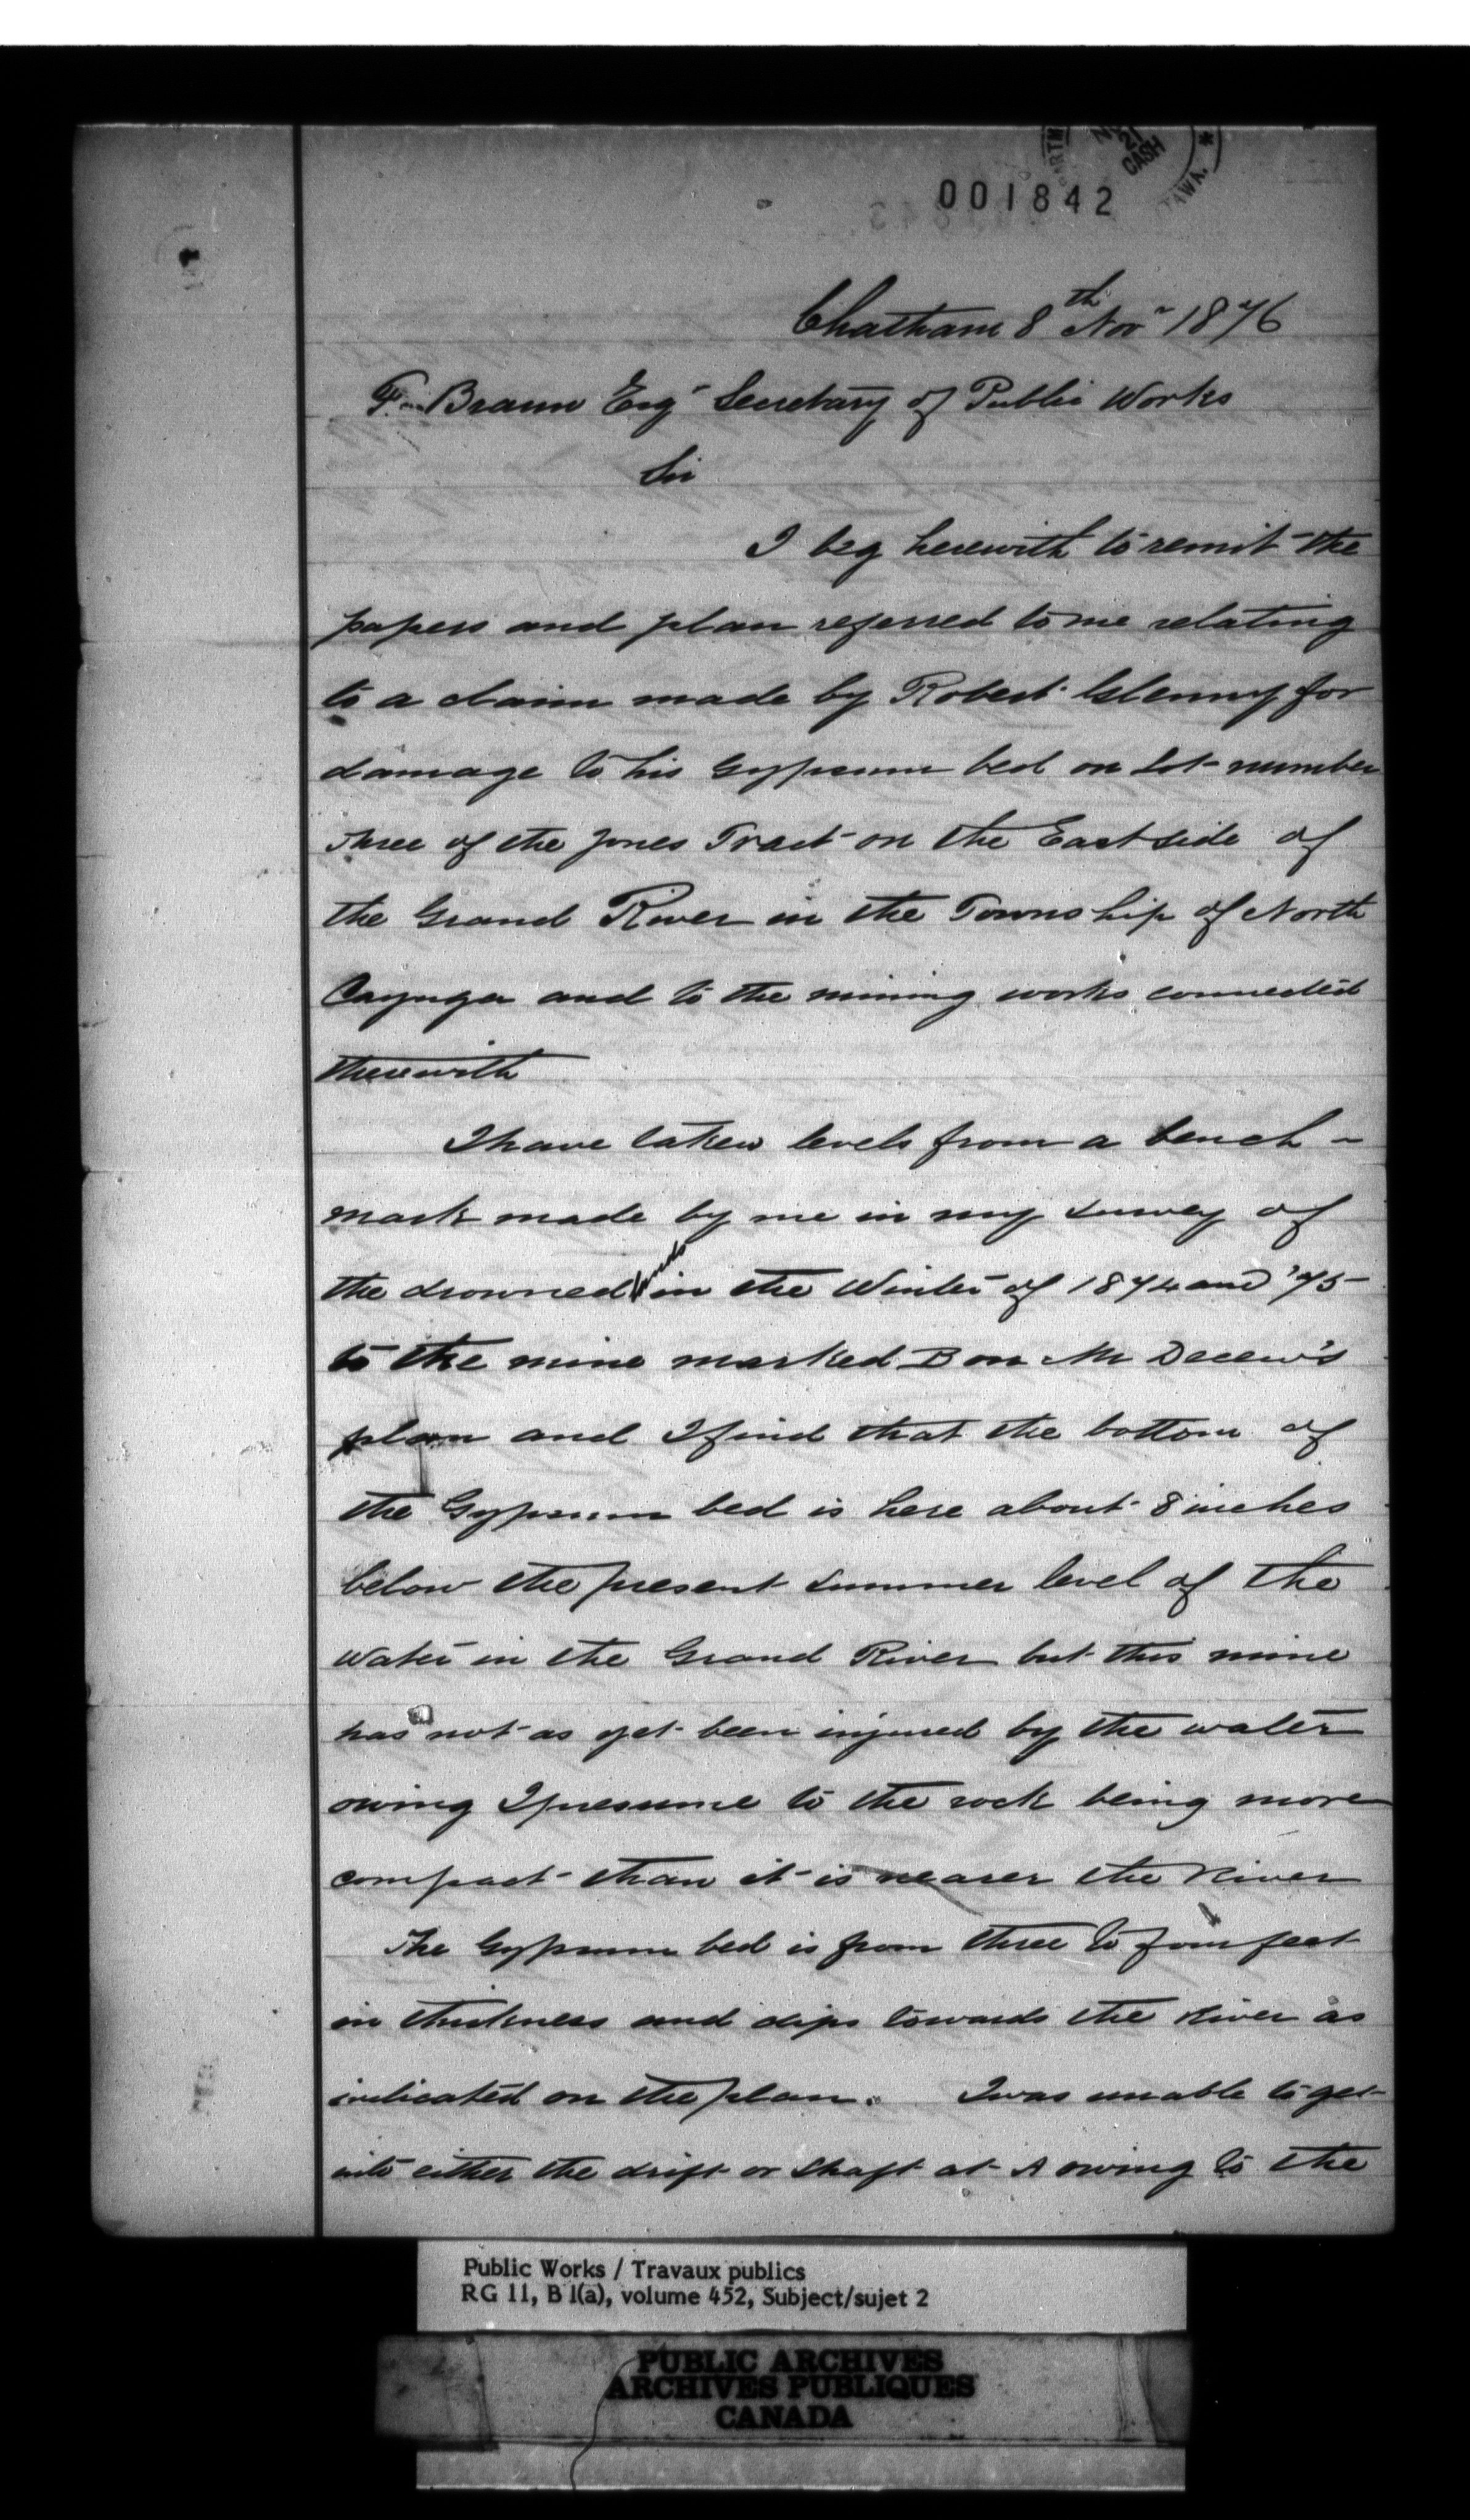 NO
21
CASH
001842
Chatham 8th Novr 1876
F. Braun Esqr Secretary of Public Works
Sir
I beg herewith to remit the
papers and plan referred to me relating
to a claim made by Robert Glenny for
damage to his Gypsum bed on Lot number
three of the Jones Tract on the East side of
the Grand River in the Township of North
Cayuga and to the mining works connected
therewith
I have taken levels from a bench-
mark made by me in my survey of
the drowned lands in the Winter of 1874 and '75
to the mine marked B on Mr Decew's
plan and I find that the bottom of
the Gypsum bed is here about 8 inches
below the present summer level of the
water in the Grand River but this mine
has not as yet been injured by the water
owing I presume to the rock being more
compact than it is nearer the River
The Gypsum bed is from three to four feet
in thickness and dips towards the River as
indicated on the plan. I was unable to get
into either the drift or shaft at A owing to the
Public Works / Travaux publics
RG 11, B 1(a), volume 452, Subject/sujet 2
PUBLIC ARCHIVES
ARCHIVES PUBLIQUES
CANADA